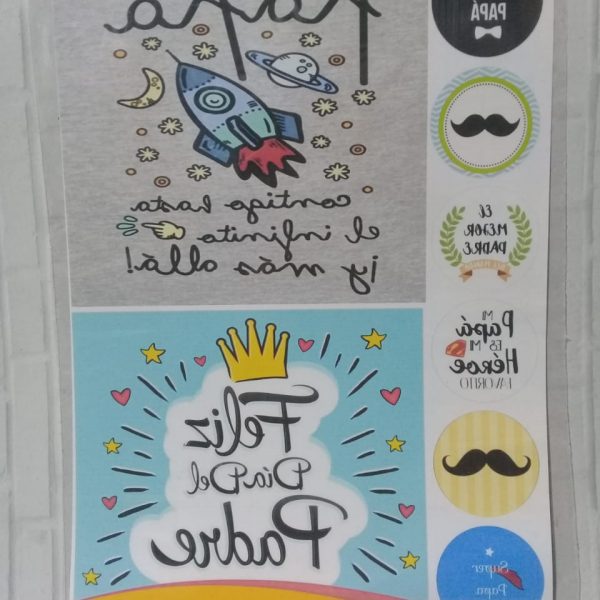 Papá
contigo hasta
el infinito
¡y más allá!
Feliz
Día Del
Padre
PAPÁ
EL
MEJOR
PADRE
MI
Papá
ES MI
Héroe
FAVORITO
Super
Papa